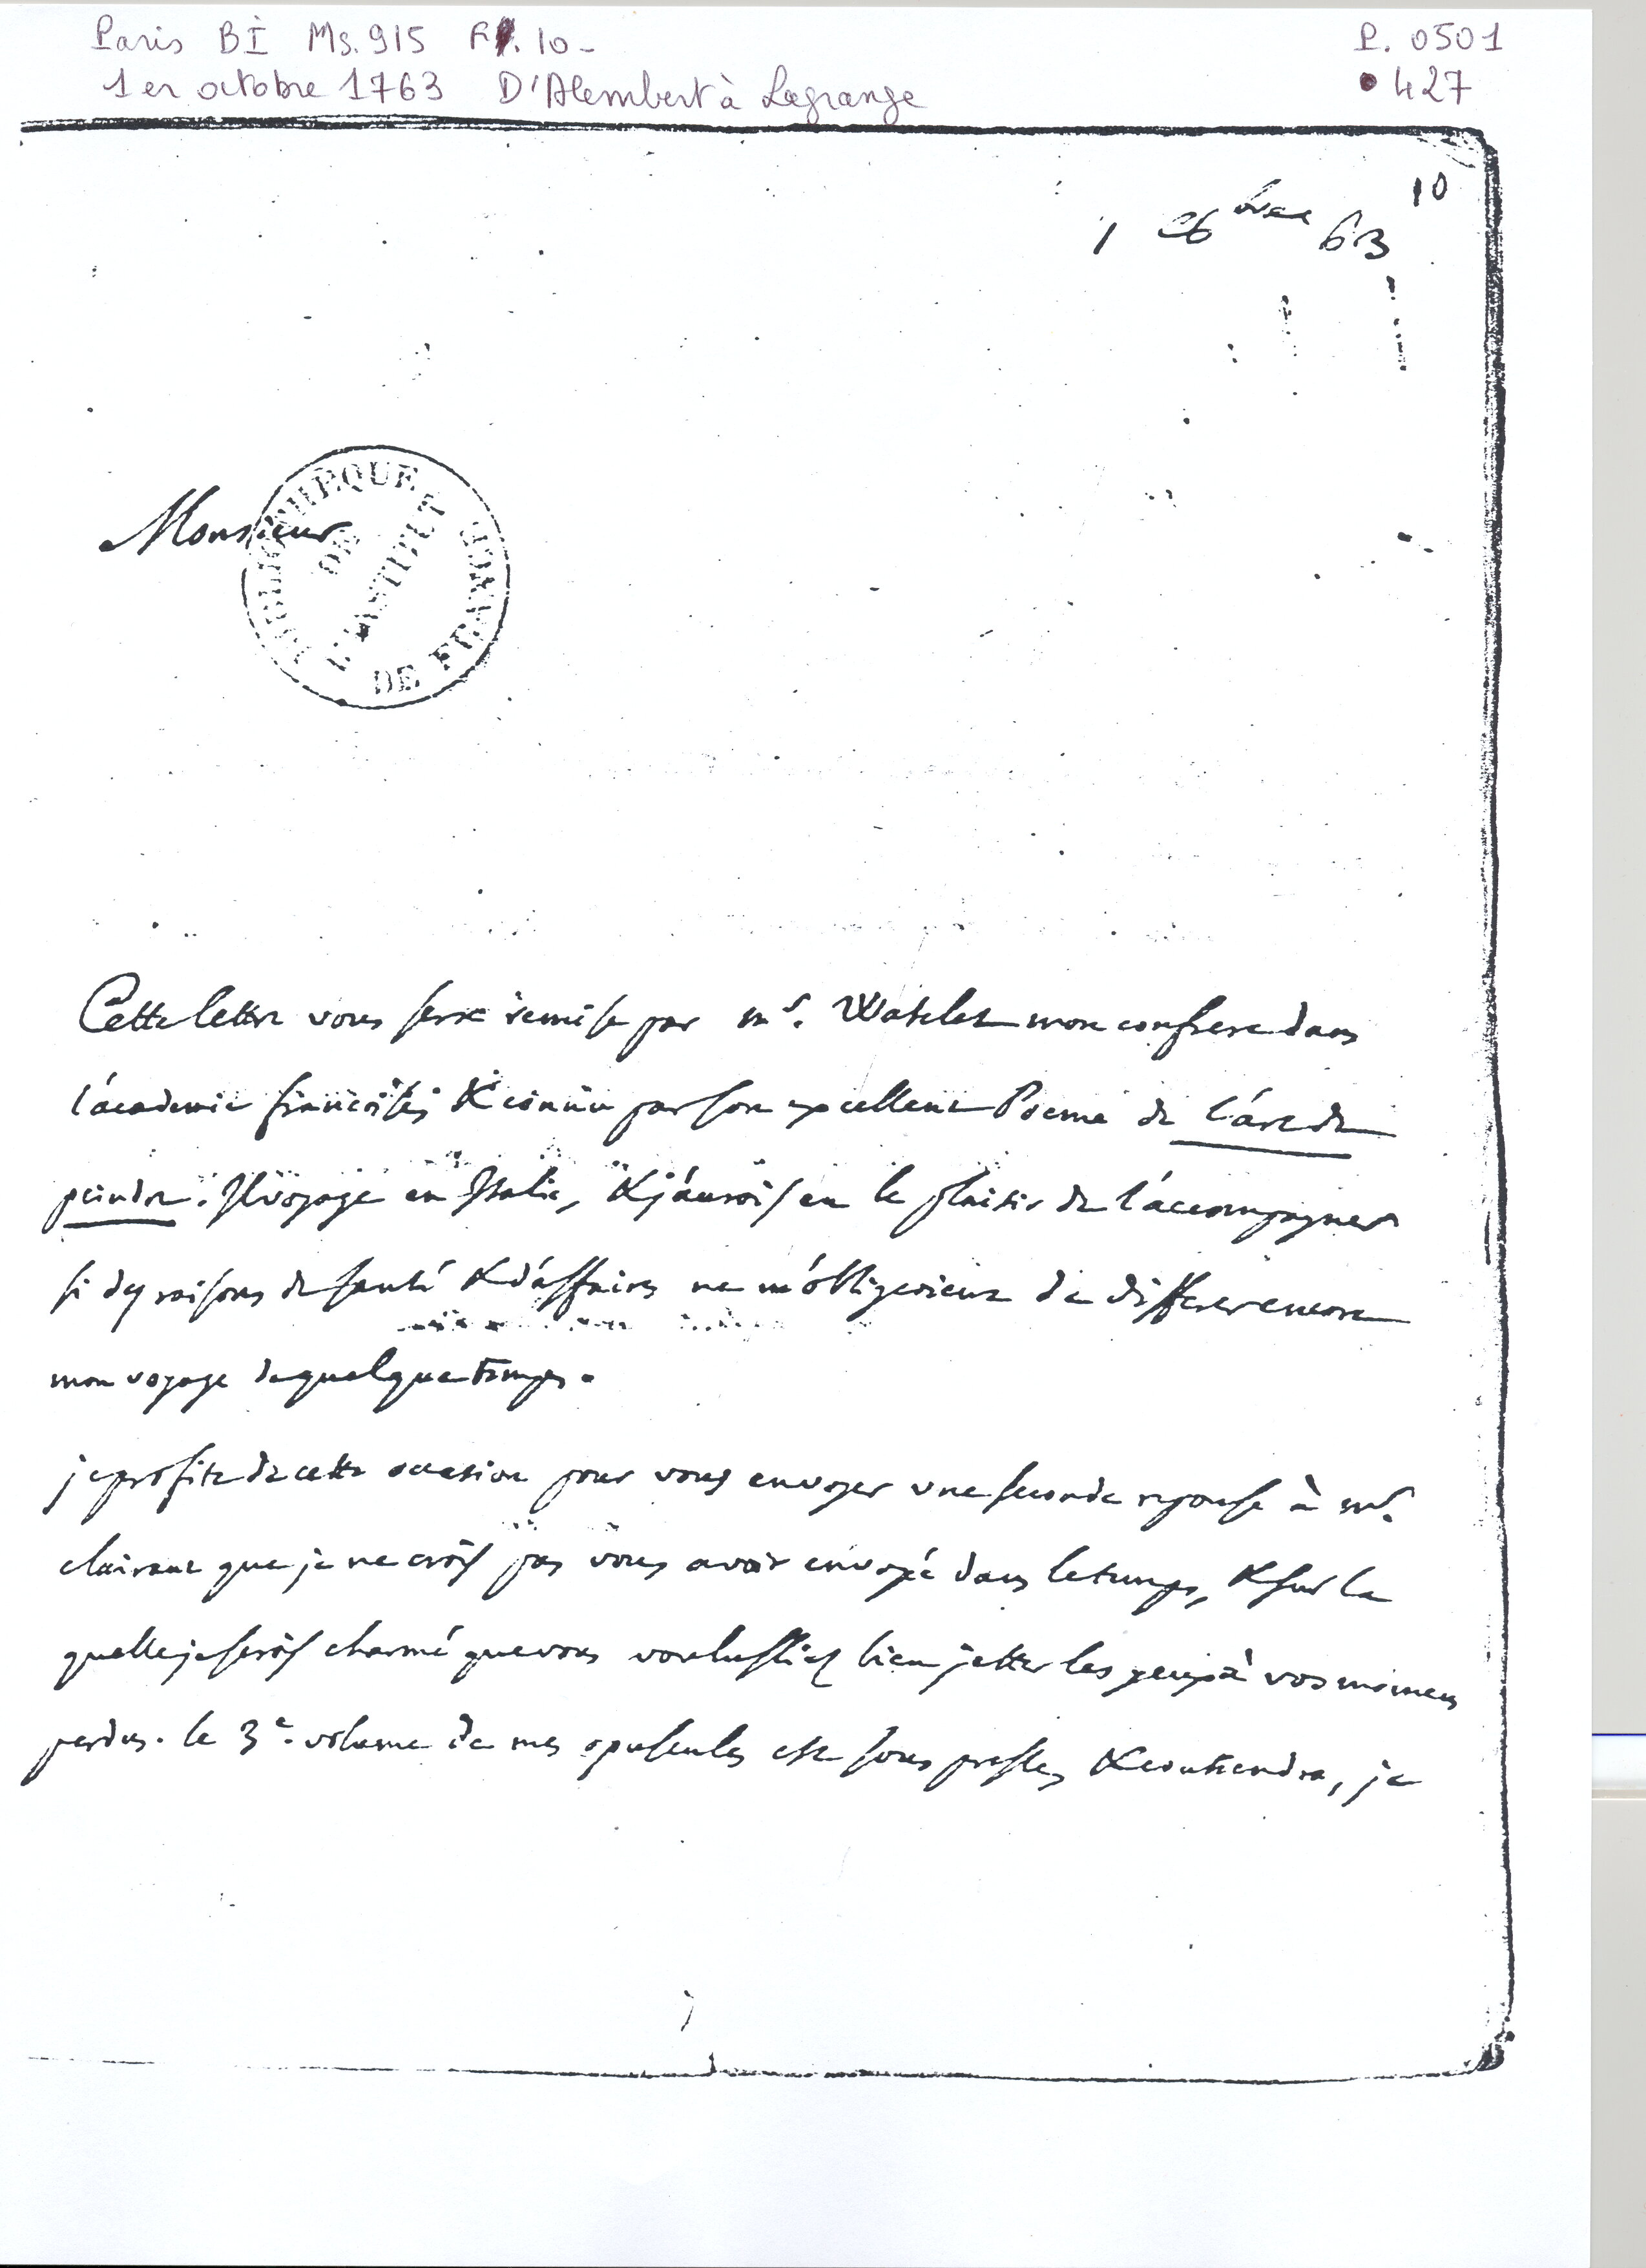 Paris BI Ms. 915 F. 10 -
P. 0501
1er octobre 1763 D'Alembert à Lagrange
427
10
1 8bre 63
Monsieur
BIBLIOTHEQUE DE L'INSTITUT DE FRANCE
Cette lettre vous sera remise par mr. Watelet mon confrere dans
l'academie françoise, & connu par son excellent Poeme de l'art de
peindre. Il voyage en Italie, & j'aurois eu le plaisir de l'accompagner
si des raisons de santé & d'affaires ne m'obligeoient de differer encore
mon voyage de quelque temps.
je profite de cette occasion pour vous envoyer une seconde reponse à mr.
clairaut que je ne crois pas vous avoir envoyé dans le temps, & sur la
quelle je serois charmé que vous voulussiez bien jetter les yeux à vos momens
perdus. le 3e. volume de mes opuscules est sous presse, & contiendra, je